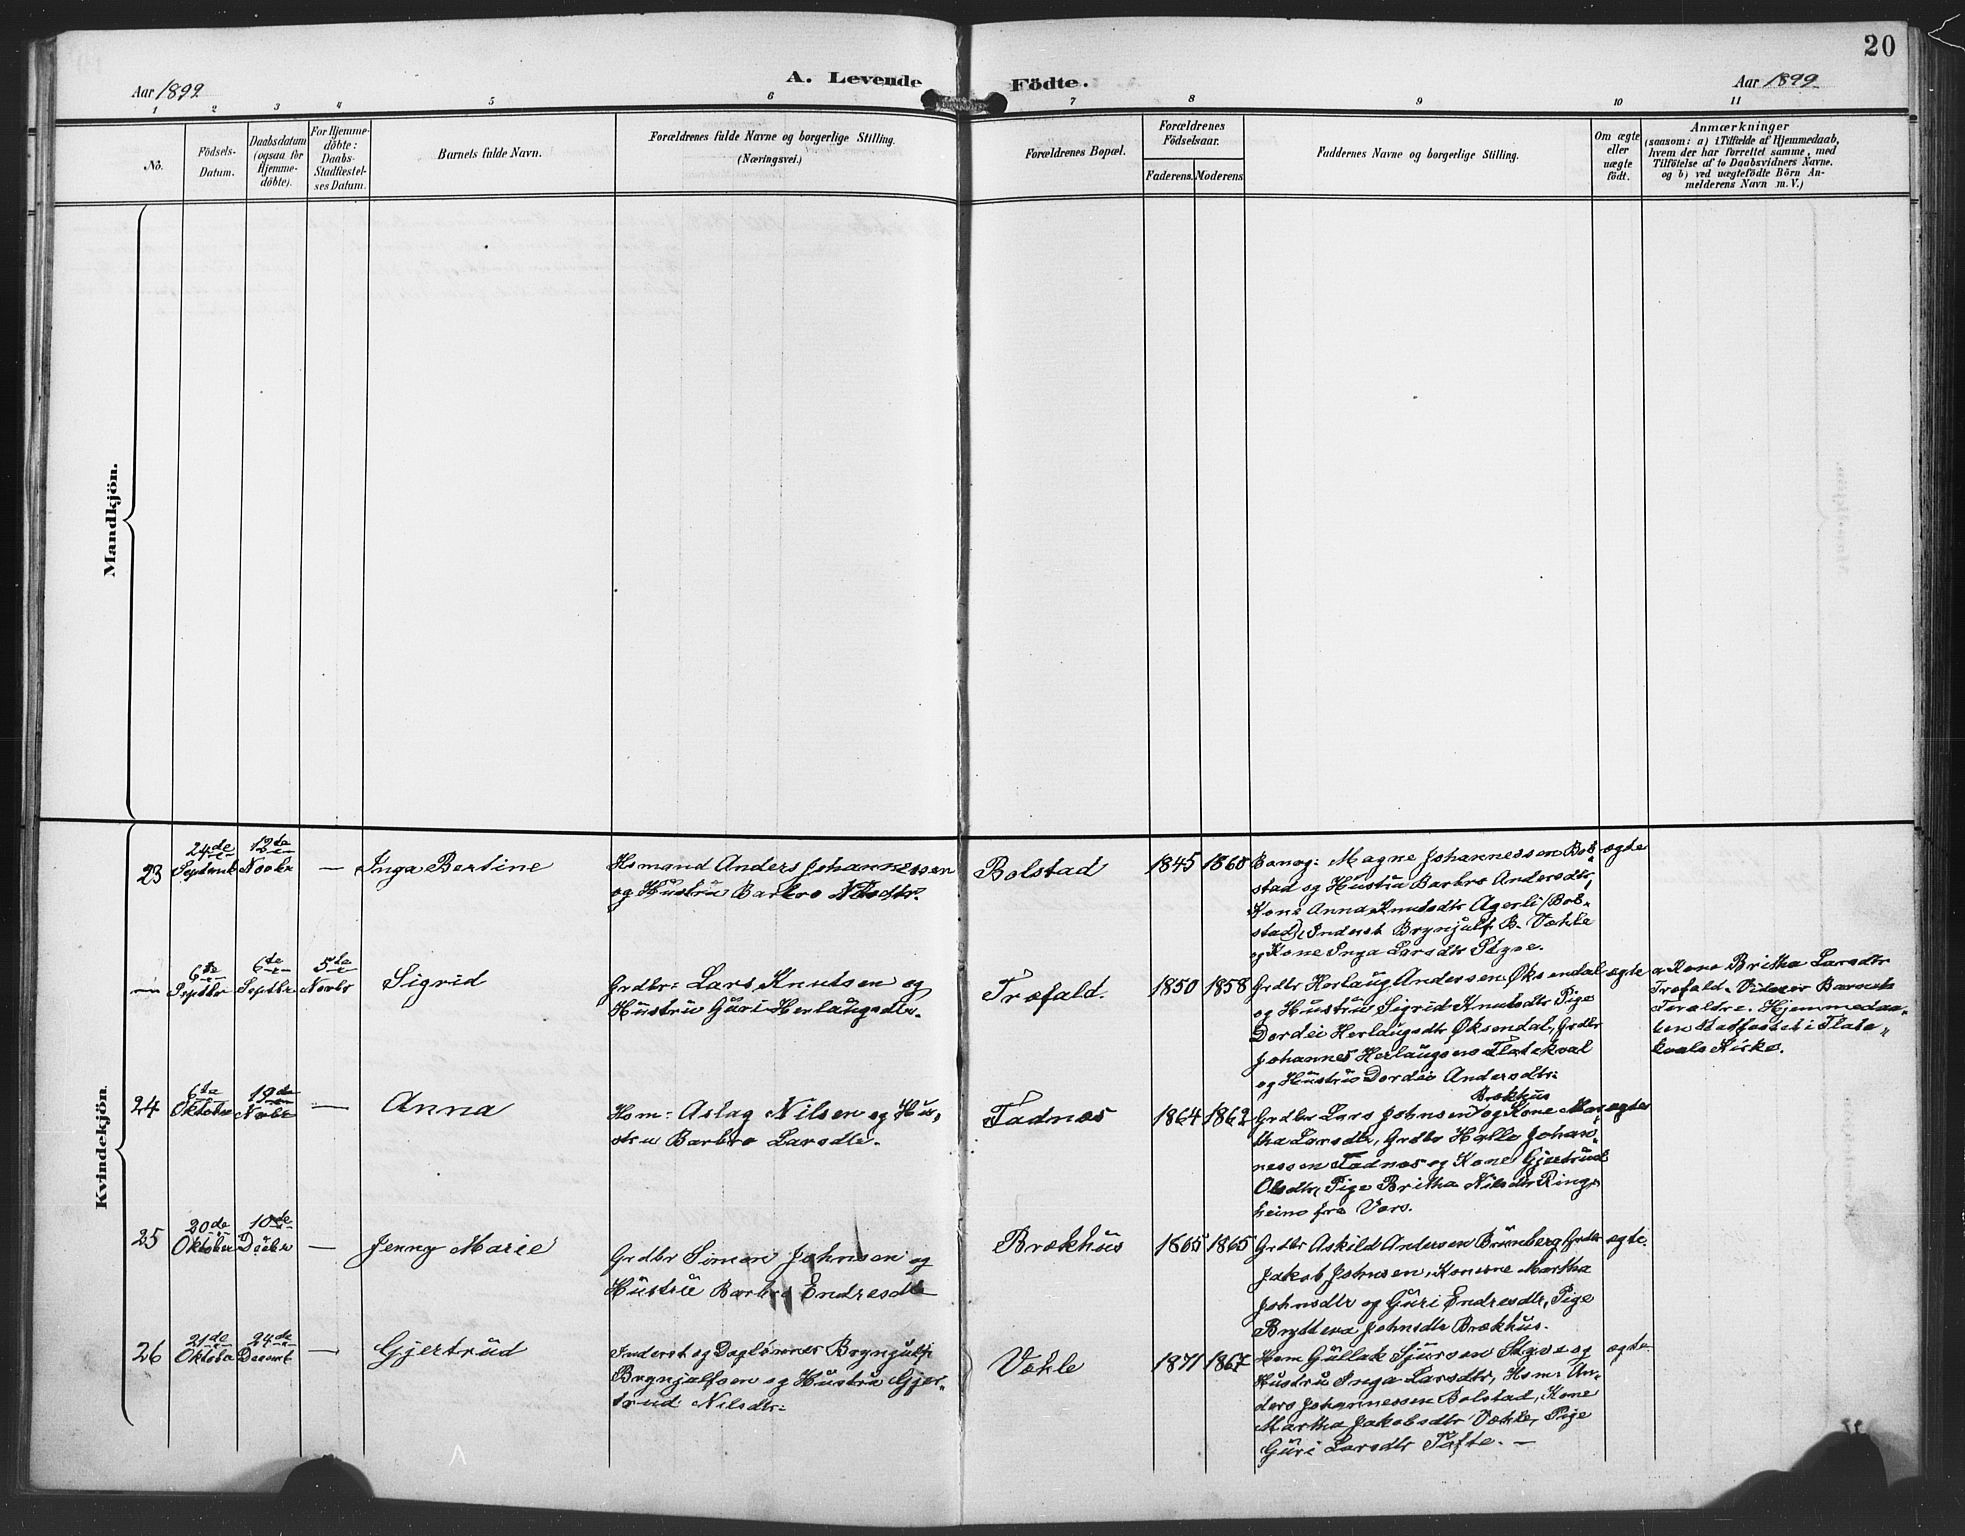 20
Aar 1899.
A. Levende Födte.
Aar 1899
1 2 3 4 5 6 7 8 9 10 11
No.
Födsels-
Datum.
Daabsdatum
(ogsaa for
Hjemme-
döbte).
For Hjemme-
döbte:
Daabs-
Stadfæstel-
ses Datum.
Barnets fulde Navn.
Forældrenes fulde Navne og borgerlige Stilling.
(Næringsvei.)
Forældrenes Bopæl.
Forældrenes
Födselsaar.
Faderens. Moderens
Faddernes Navne og borgerlige Stilling.
Om ægte
eller
uægte
födt.
Anmærkninger
(saasom: a) i Tilfælde af Hjemmedaab,
hvem der har forrettet samme, med
Tilföielse af to Daabsvidners Navne.
og b) ved uægtefödte Börn An-
melderens Navn m. V.)
Mandkjön.
Kvindekjön.
23
24de
Septemb
12de
Novbr
—
Inga Bertine
Hsmand Anders Johannessen
og Hustru Barbro
Bolstad
1845
1860
Magne Johannessen Bol-
stad og Hustru Barbro Andersdtr,
Kone Anna Knutsdtr Agerli/Bol-
stad, Inderst Brynjulf B. Væhle
og Kone Inga Larsdtr Styve.
ægte
6te
Septbr
6te
Septbr
5te
Novbr
Sigrid
Grdbr: Lars Knutsen og
Hustru Guri Herlaugsdtr.
Træfald.
1850
1858
Grdbr Herlaug Andersen Øksendal
og Hustru Sigrid Knutsdtr Pige
Dordei Herlaugsdtr Øksendal, Grdbr
Johannes Herlaugsens Flatekval
og Hustru Dordei Andersdtr:
ægte
a. Kone Britha Larsdtr
Træfald. Vidner Barnets
Foraldre. Hjemmedaa-
ben Stadfæstet i Flate-
kvals Kirke.
24
6te
Oktober
19de
Novbr
—
Anna
Hsm: Aslag Nilsen og Hu-
stru Barbro Larsdtr.
Tadnæs
1864
1862
Brækhus
Grdbr Lars Johnsen og Kone Mar-
tha Larsdtr, Grdbr Halle Johan-
nessen Tadnæs og Kone Gjertrud
Olsdtr, Pige Britha Nilsdtr Ring-
heim fra Vors.
ægte
25
20de
Oktober
10de
Decbr
—
Jenny Marie
Grdbr Simon Johnsen og
Hustru Barbro Endresdtr
Brækhus
1865
1865
Grdbr Askild Andersen Brunberg, Grdbr
Jakob Johnsen, Konerne Martha
Johnsdtr og Guri Endresdtr, Pige
Bryttera Johnsdtr Brækhus.
ægte.
26
21de
Oktober
24de
Decemb
—
Gjertrud
Inderst og Daglønner Brynjulf
Brynjulfsen og Hustru Gjer-
trud Nilsdtr.
Væhle
1871
1867
Hsm Gullak Sjursen Styve og
Hustru Inga Larsdtr, Hsm: An-
ders Johannessen Bolstad, Kone
Martha Jakobsdtr Væhle, Pige
Guri Larsdtr Tøfte. —
ægte